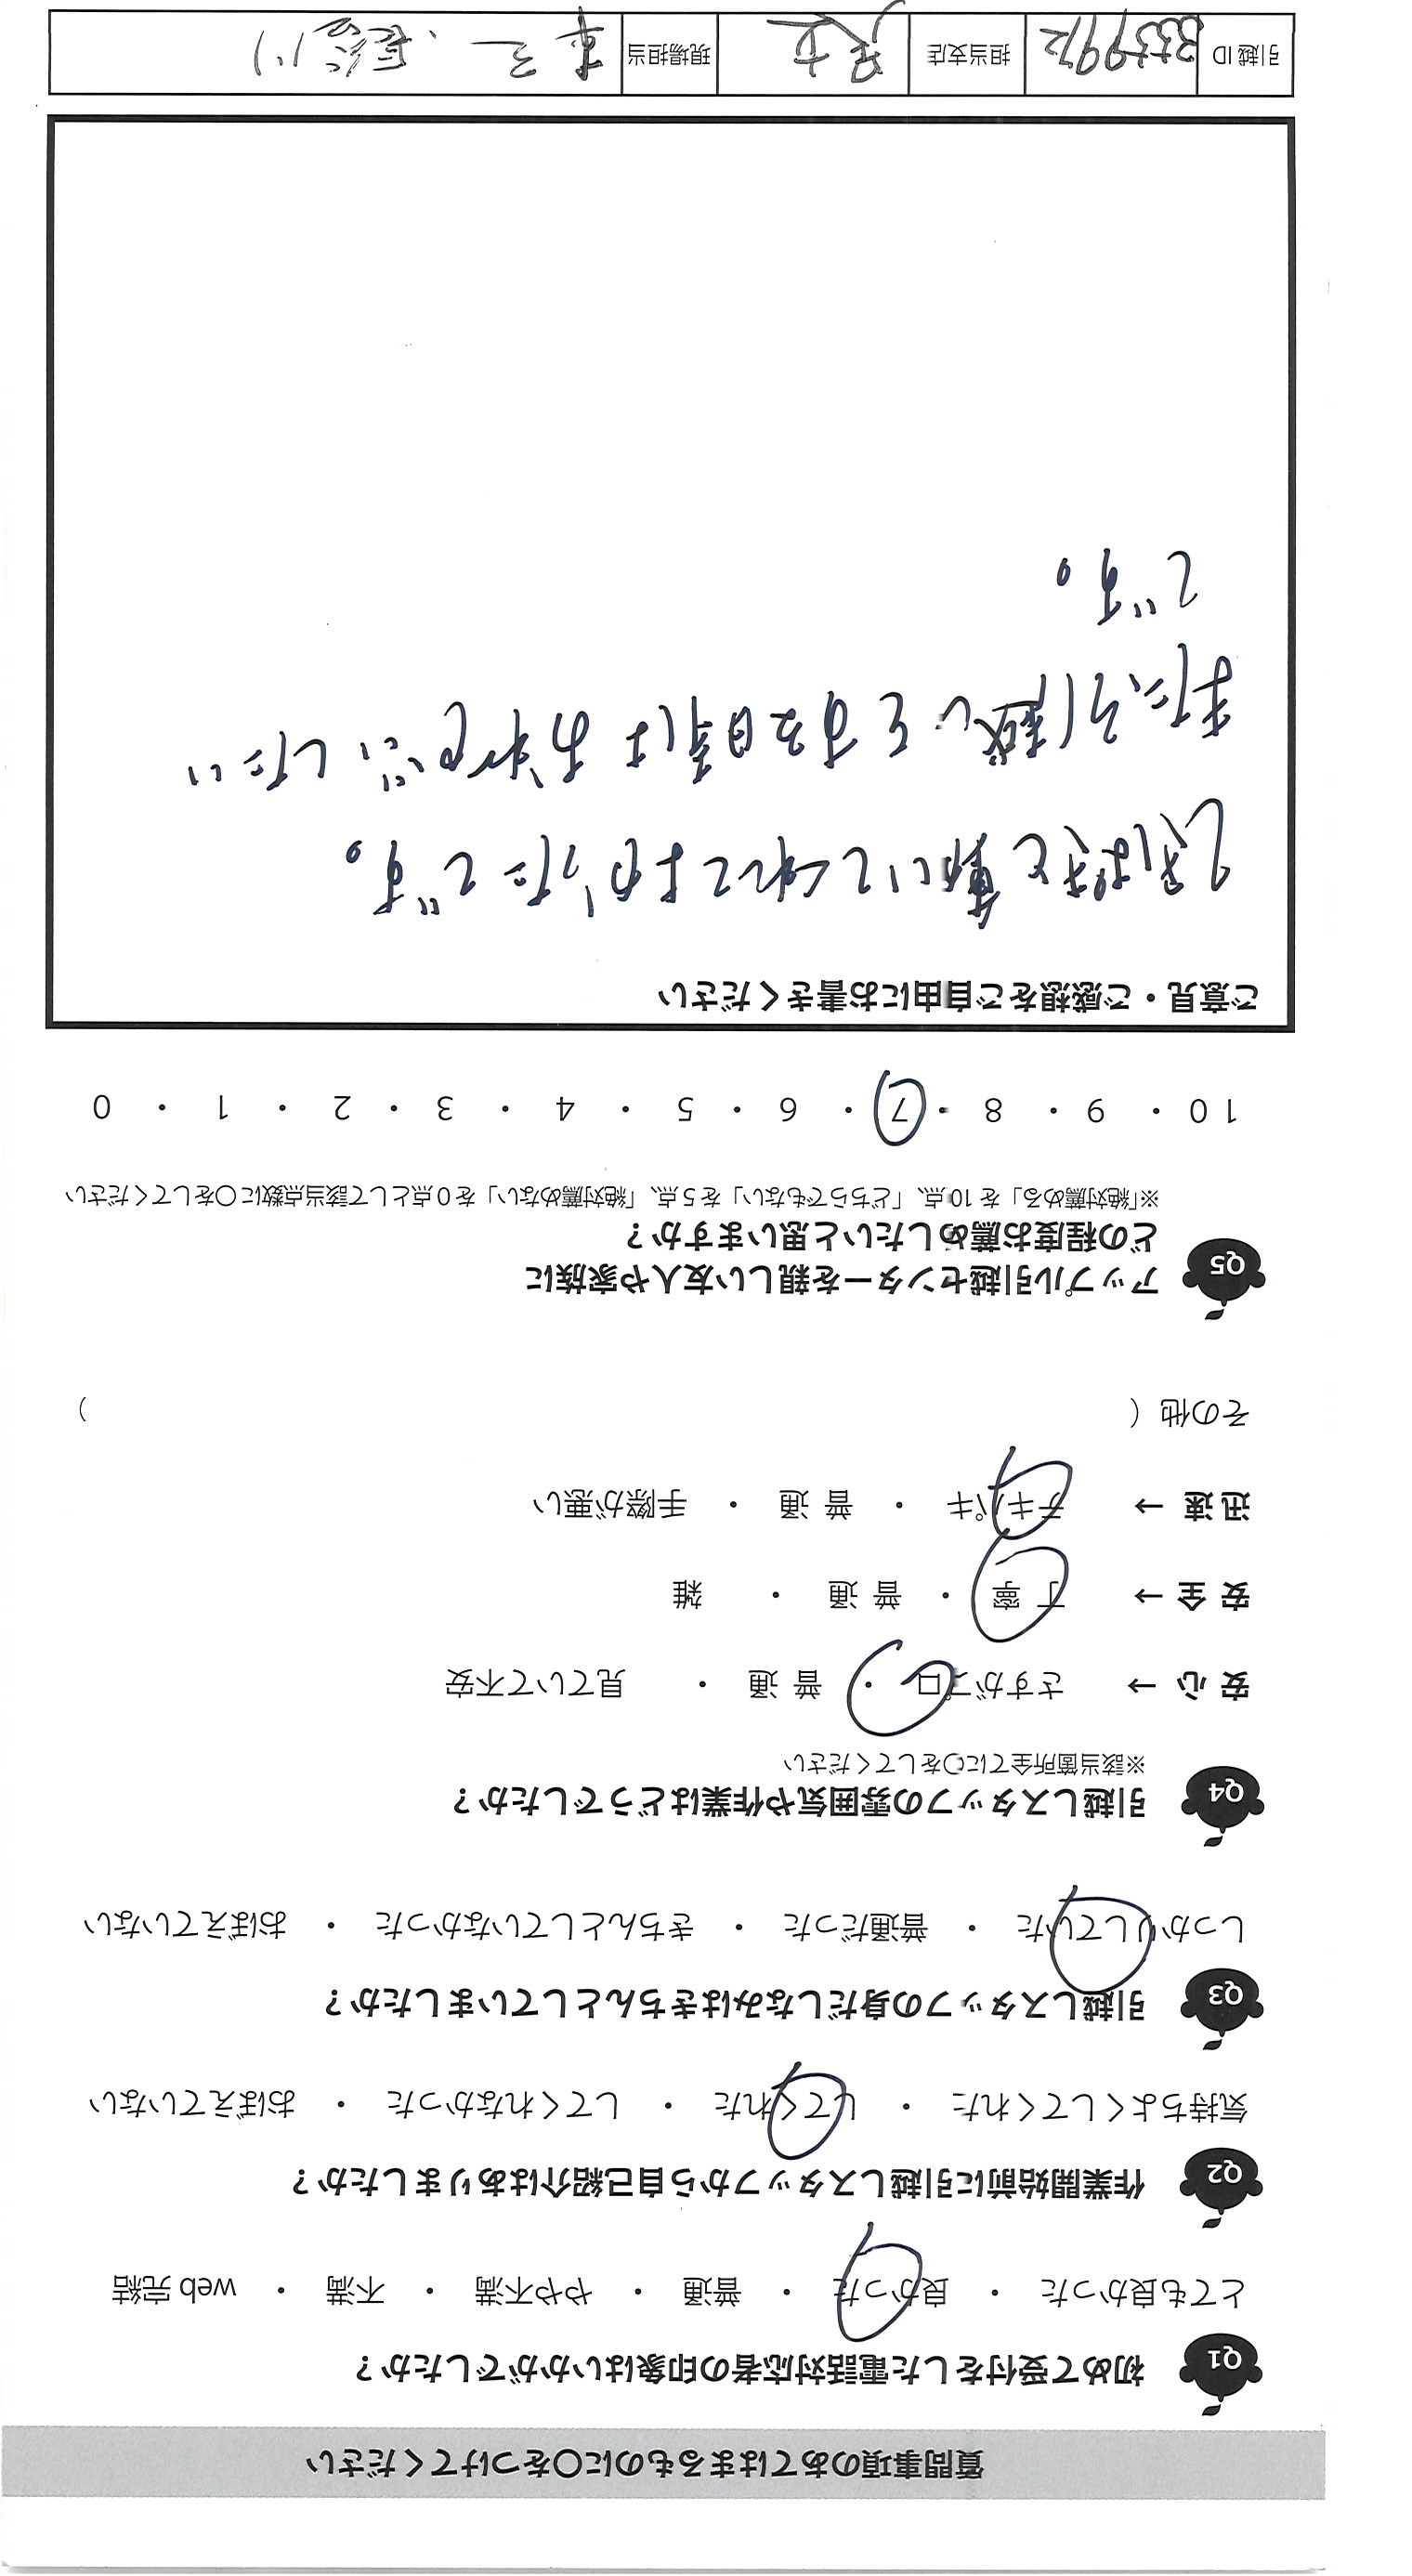 質問事項のあてはまるものに〇をつけてください
Q1 初めて受付をした電話対応者の印象はいかがでしたか？
とても良かった ・ 良かった ・ 普通 ・ やや不満 ・ 不満 ・ web 完結
Q2 作業開始前に引越しスタッフから自己紹介はありましたか？
気持ちよくしてくれた ・ してくれた ・ してくれなかった ・ おぼえていない
Q3 引越しスタッフの身だしなみはきちんとしていましたか？
しっかりしていた ・ 普通だった ・ きちんとしていなかった ・ おぼえていない
Q4 引越しスタッフの雰囲気や作業はどうでしたか？
※該当箇所全てに〇をしてください
安 心 → さすがプロ ・ 普 通 ・ 見ていて不安
安 全 → 丁 寧 ・ 普 通 ・ 雑
迅 速 → テキパキ ・ 普 通 ・ 手際が悪い
その他（ ）
Q5 アップル引越センターを親しい友人や家族に
どの程度お薦めしたいと思いますか？
※「絶対薦める」を 10 点、「どちらでもない」を 5 点、「絶対薦めない」を 0 点として該当点数に〇をしてください
10 ・ 9 ・ 8 ・ 7 ・ 6 ・ 5 ・ 4 ・ 3 ・ 2 ・ 1 ・ 0
ご意見・ご感想をご自由にお書きください
てきぱきと動いてくれてよかったです。
また引越しをする時はお願いしたい
です。
引越 ID 担当支店 足立 現場担当 長谷川